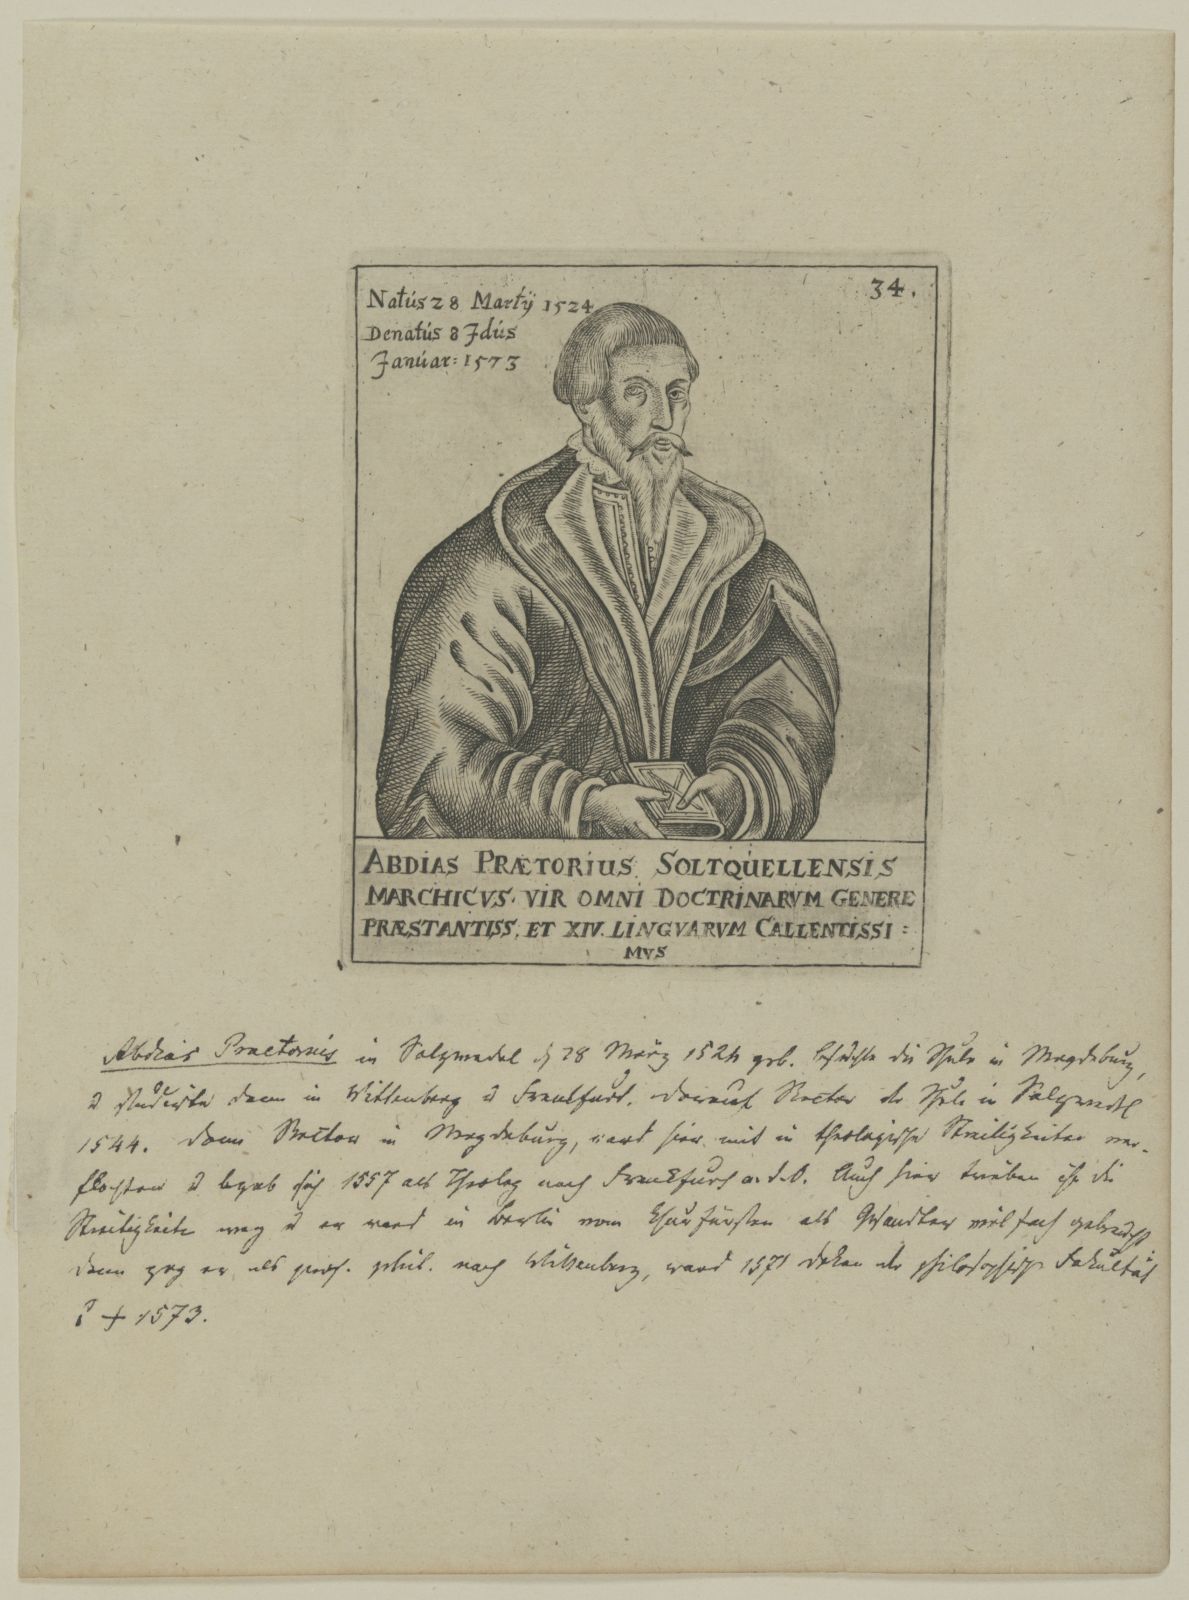 34.
Natus 28 Martÿ 1524
Denatus 8 Jdus
Januar: 1573
ABDIAS PRÆTORIUS SOLTQUELLENSIS
MARCHICVS. VIR OMNI DOCTRINARVM GENERE
PRÆSTANTISS. ET XIV. LINGVARVM CALLENTISSI:
MVS
Abdias Praetorius in Salzwedel 28 März 1524 geb. besuchte die Schule in Magdeburg,
u studierte dann in Wittenberg u Frankfurt. darauf Rector der Schule in Salzwedel
1544. dann Rector in Magdeburg, ward hier mit in theologische Streitigkeiten ver-
flochten u begab sich 1557 als Theolog nach Frankfurt a. d. O. Auch hier trieben ihn die
Streitigkeiten weg u er ward in Berlin vom Churfürsten als Gesandter vielfach gebraucht
dann zog er als prof. phil. nach Wittenberg, ward 1571 Dekan der philosophisch Fakultät
† 1573.